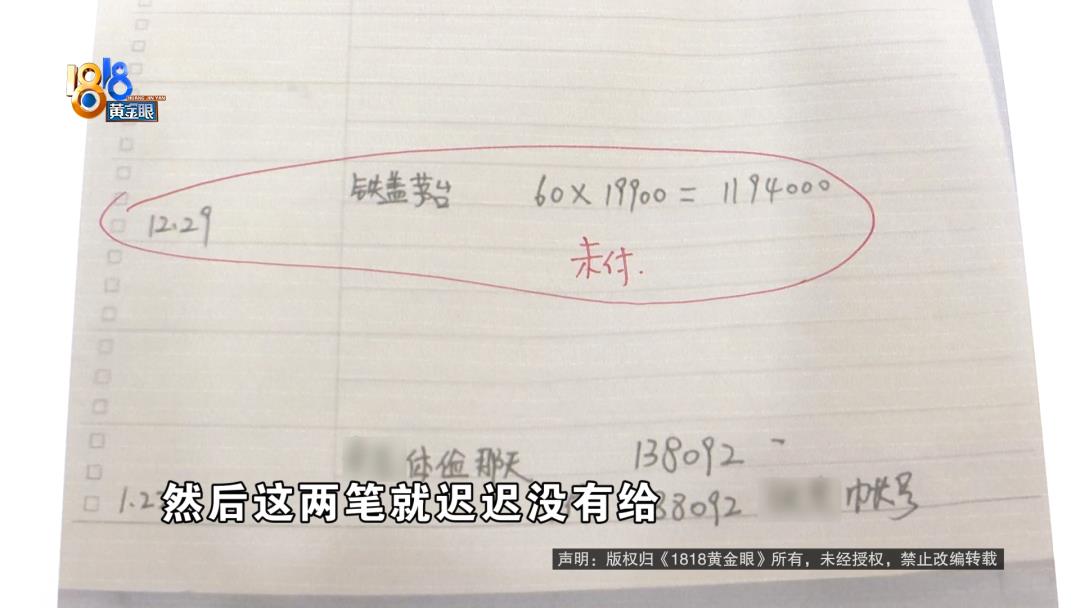 1818
HUANG JIN YAN
黄金眼
铁盖茅台 60×19900=1194000
12.29
未付.
体检那天 138092
然后这两笔就迟迟没有给
38092 帐号
声明：版权归《1818黄金眼》所有，未经授权，禁止改编转载